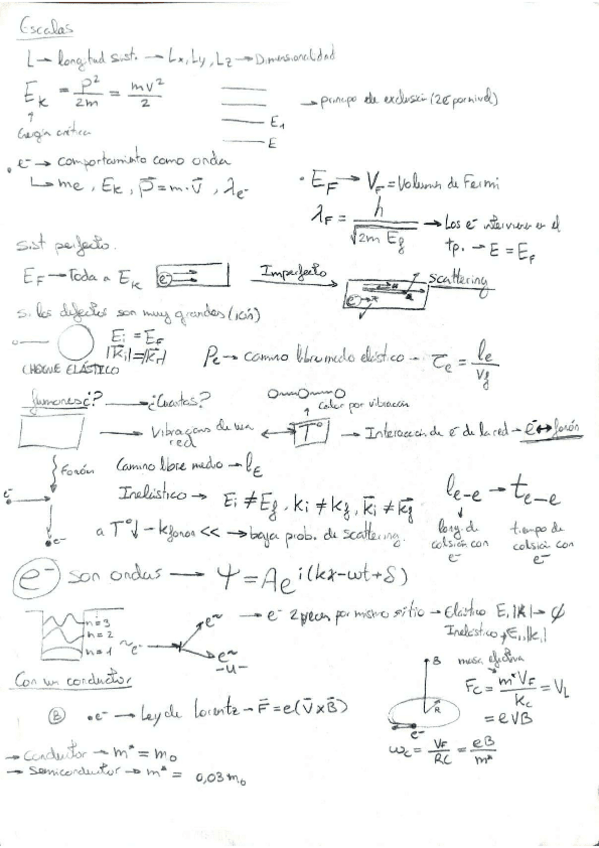 Escalas
L → longitud sist. → Lx, Ly, Lz → Dimensionalidad
E_k = p²/2m = mv²/2
→ principio de exclusión (2e⁻ por nivel)
E₁
E
Energía cinética
• e⁻ → comportamiento como onda
↳ me, E_k, p⃗ = m·v⃗, λ_e⁻
• E_F → V_F = Volumen de Fermi
λ_F = h/√2m E_f → Los e⁻ intervienen en el
tp. → E = E_F
Sist perfecto.
E_F → Toda a E_k
e⁻
Imperfecto
Scattering
e⁻
Si los defectos son muy grandes (ión)
E_i = E_F
|k⃗_i| = |k⃗_f|
CHOQUE ELÁSTICO
ℓ_e → camino libre medio elástico → τ_e = ℓ_e/v_f
¿fonones? → ¿Cuantos?
Calor por vibración
→ Vibraciones de una red ↔ T° → Interacción de e⁻ de la red → e⁻ ↔ fonón
Fonón
e⁻
e⁻
Camino libre medio → ℓ_E
Inelástico → E_i ≠ E_f, k_i ≠ k_f, k⃗_i ≠ k⃗_f
a T°↓ → k fonon << → baja prob. de scattering.
ℓ_e-e → t_e-e
long. de colisión con e⁻
tiempo de colisión con e⁻
e⁻ son ondas → Ψ = A e^i(kx-wt+δ)
n=3
n=2
n=1
~e⁻
e~
e~
-u-
→ e⁻ 2 veces por mismo sitio → Elástico E, |k| → φ
Inelástico ≠ E, |k|
Con un conductor
B • e⁻ → Ley de Lorentz → F⃗ = e(v⃗ x B⃗)
B
R
e⁻
masa efectiva
F_c = m*V_F/k_c = V_L
= eVB
ω_c = V_F/RC = eB/m*
→ Conductor → m* = m₀
→ Semiconductor → m* = 0,03 m₀